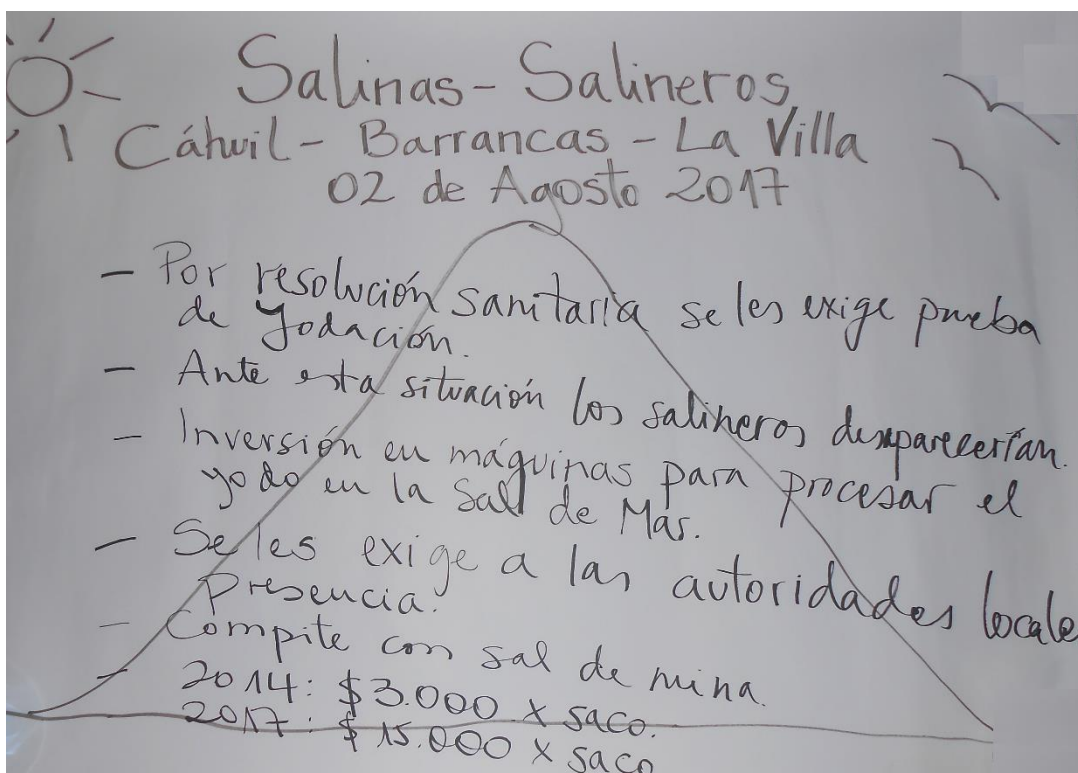 Salinas - Salineros
Cáhuil - Barrancas - La Villa
02 de Agosto 2017
- Por resolución sanitaria se les exige prueba
de Yodación.
- Ante esta situación los salineros desaparecerían.
- Inversión en máquinas para procesar el
yodo en la Sal de Mar.
- Se les exige a las autoridades locale
Presencia.
- Compite con sal de mina.
- 2014: $3.000 x saco.
2017: $15.000 x saco